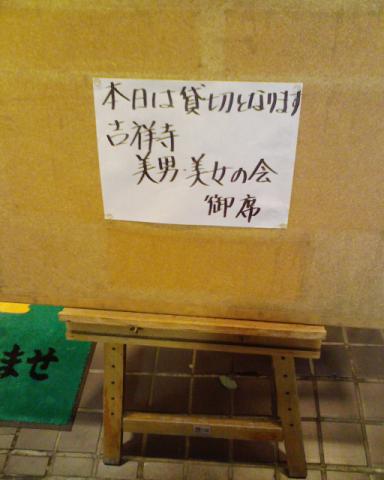 本日は貸切となります
吉祥寺
美男・美女の会
御席
ませ